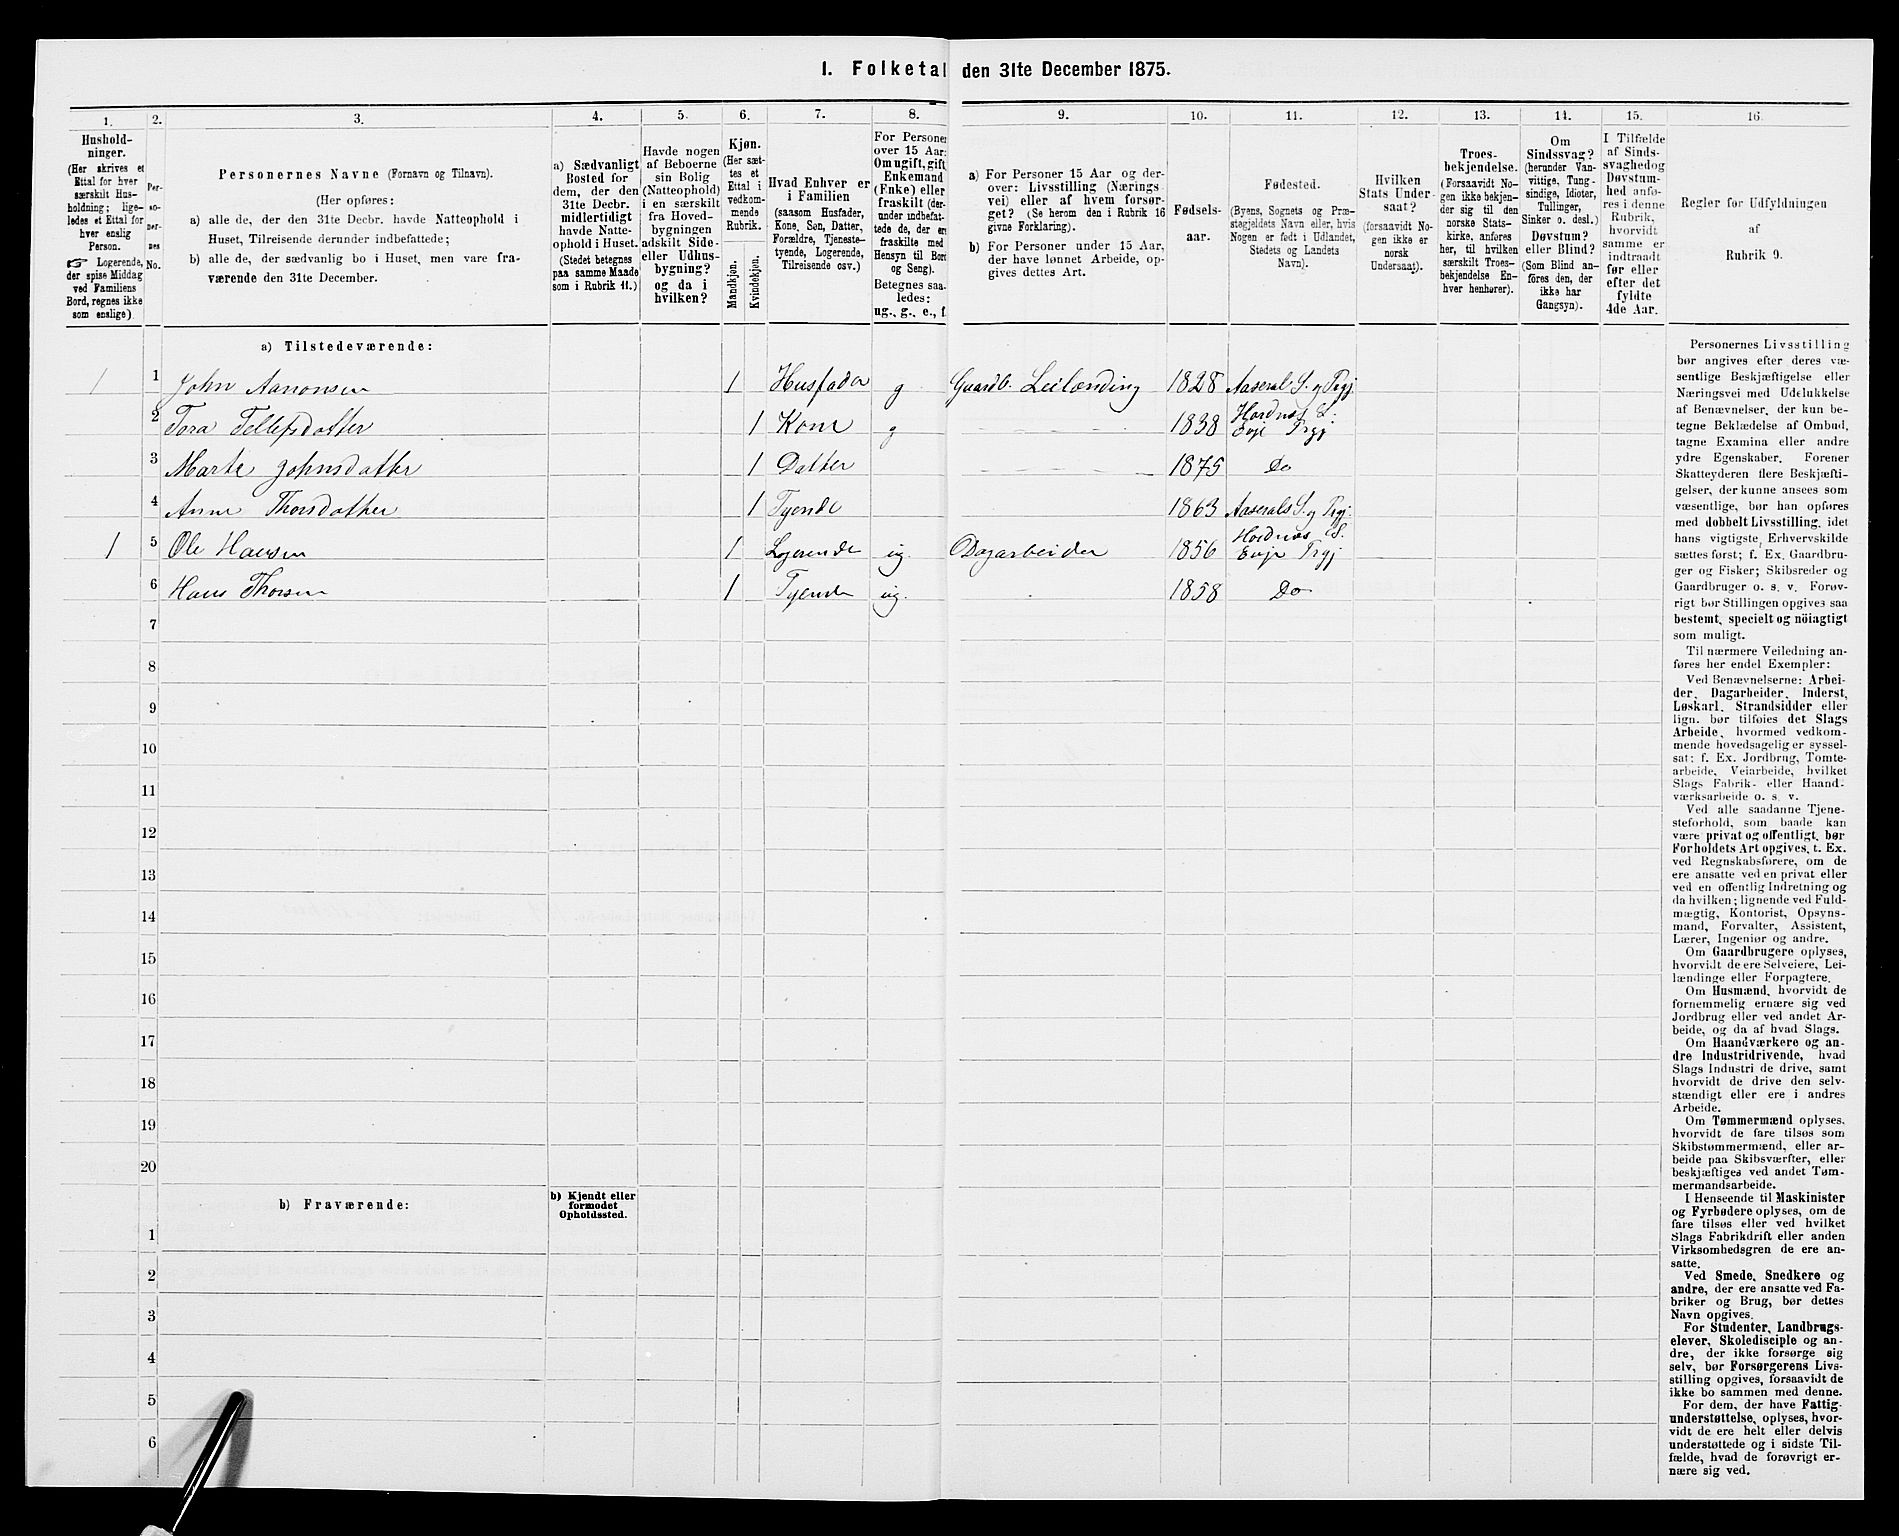 I. Folketal den 31te December 1875.
1. 2. 3. 4. 5. 6. 7. 8. 9. 10. 11. 12. 13. 14. 15. 16.
Hushold-
ninger.
(Her skrives et
Ettal for hver
særskilt Hus-
holdning; lige-
ledes et Ettal for
hver enslig
Person.
☞ Logerende,
der spise Middag
ved Familiens
Bord, regnes ikke
som enslige)
Per-
so-
ner-
nes
No.
Personernes Navne (Fornavn og Tilnavn).
(Her opføres:
a) alle de, der den 31te Decbr. havde Natteophold i
Huset, Tilreisende derunder indbefattede;
b) alle de, der sædvanlig bo i Huset, men vare fra-
værende den 31te December.
a) Sædvanligt
Bosted for
dem, der den
31te Decbr.
midlertidigt
havde Natte-
ophold i Huset.
(Stedet betegnes
paa samme Maade
som i Rubrik 11.)
Havde nogen
af Beboerne
sin Bolig
(Natteophold)
i en særskilt
fra Hoved-
bygningen
adskilt Side-
eller Udhus-
bygning?
og da i
hvilken?
Kjøn.
(Her sæt-
tes et
Ettal i
vedkom-
mende
Rubrik.
Mandkjøn.
Kvindekjøn.
Hvad Enhver er
i Familien
(saasom Husfader,
Kone, Søn, Datter,
Forældre, Tjeneste-
tyende, Logerende,
Tilreisende osv.)
For Personer
over 15 Aar:
Om ugift, gift,
Enkemand
(Enke) eller
fraskilt (der-
under indbefat-
tede de, der ere
fraskilte med
Hensyn til Bord
og Seng).
Betegnes saa-
ledes:
ug., g., e., f.
a) For Personer 15 Aar og der-
over: Livsstilling (Nærings-
vei) eller af hvem forsør-
get? (Se herom den i Rubrik 16
givne Forklaring).
b) For Personer under 15 Aar,
der have lønnet Arbeide, op-
gives dettes Art.
Fødsels-
aar.
Fødested.
(Byens, Sognets og Præ-
stegjeldets Navn eller, hvis
Nogen er født i Udlandet,
Stedets og Landets
Navn).
Hvilken
Stats Under-
saat?
(forsaavidt No-
gen ikke er
norsk
Undersaat).
Troes-
bekjendelse.
(Forsaavidt No-
gen ikke bekjen-
der sig til den
norske Stats-
kirke, anføres
her, til hvilken
særskilt Troes-
bekjendelse En-
hver henhører).
Om
Sindssvag?
(herunder Van-
vittige, Tung-
sindige, Idioter,
Tullinger,
Sinker o. desl.)
Døvstum?
eller Blind?
(Som Blind an-
føres den, der
ikke har
Gangsyn).
I Tilfælde
af Sinds-
svaghed og
Døvstum-
hed anfø-
res i denne
Rubrik,
hvorvidt
samme er
indtraadt
før eller
efter det
fyldte
4de Aar.
Regler for Udfyldningen
af
Rubrik 9.
a) Tilstedeværende:
1 1 John Aanonsen 1 Husfader g Gaardb. Leilænding 1828 Aaserals S. og Prgj.
2 Tora Tellefsdatter 1 Kone g 1838 Hordnæs S. Evje Prgj
3 Marte Johnsdatter 1 Datter 1875 Do
4 Anne Thorsdatter 1 Tyende 1863 Aaserals S. og Prgj.
1 5 Ole Hansen 1 Logerende ug. Dagarbeider 1856 Hordnæs S. Evje Prgj
6 Hans Thorsen 1 Tyende ug. 1858 Do
7
8
9
10
11
12
13
14
15
16
17
18
19
20
b) Fraværende:
b) Kjendt eller
formodet
Opholdssted.
1
2
3
4
5
6
Personernes Livsstilling
bør angives efter deres væ-
sentlige Beskjæftigelse eller
Næringsvei med Udelukkelse
af Benævnelser, der kun be-
tegne Beklædelse af Ombud,
tagne Examina eller andre
ydre Egenskaber. Forener
Skatteyderen flere Beskjæfti-
gelser, der kunne ansees som
væsentlige, bør han opføres
med dobbelt Livsstilling, idet
hans vigtigste, Erhvervskilde
sættes først; f. Ex. Gaardbru-
ger og Fisker; Skibsreder og
Gaardbruger o. s. v. Forøv-
rigt bør Stillingen opgives saa
bestemt, specielt og nöiagtigt
som muligt.
Til nærmere Veiledning an-
føres her endel Exempler:
Ved Benævnelserne: Arbei-
der, Dagarbeider, Inderst,
Løskarl, Strandsidder eller
lign. bør tilføies det Slags
Arbeide, hvormed vedkom-
mende hovedsagelig er syssel-
sat; f. Ex. Jordbrug, Tomte-
arbeide, Veiarbeide, hvilket
Slags Fabrik- eller Haand-
værksarbeide o. s. v.
Ved alle saadanne Tjene-
steforhold, som baade kan
være privat og offentligt, bør
Forholdets Art opgives, t. Ex.
ved Regnskabsførere, om de
ere ansatte ved en privat eller
ved en offentlig Indretning og
da hvilken; lignende ved Fuld-
mægtig, Kontorist, Opsyns-
mand, Forvalter, Assistent,
Lærer, Ingeniør og andre.
Om Gaardbrugere oplyses,
hvorvidt de ere Selveiere, Lei-
lændinge eller Forpagtere.
Om Husmænd, hvorvidt de
fornemmelig ernære sig ved
Jordbrug eller ved andet Ar-
beide, og da af hvad Slags.
Om Haandværkere og an-
dre Industridrivende, hvad
Slags Industri de drive, samt
hvorvidt de drive den selv-
stændigt eller ere i andres
Arbeide.
Om Tømmermænd oplyses,
hvorvidt de fare tilsøs som
Skibstømmermænd, eller ar-
beide paa Skibsværfter, eller
beskjæftiges ved andet Tøm-
mermandsarbeide.
I Henseende til Maskinister
og Fyrbødere oplyses, om de
fare tilsøs eller ved hvilket
Slags Fabrikdrift eller anden
Virksomhedsgren de ere an-
satte.
Ved Smede, Snedkere og
andre, der ere ansatte ved Fa-
briker og Brug, bør dettes
Navn opgives.
For Studenter, Landbrugs-
elever, Skoledisciple og an-
dre, der ikke forsørge sig
selv, bør Forsørgerens Livs-
stilling opgives, forsaavidt de
ikke bo sammen med denne.
For dem, der have Fattig-
understøttelse, oplyses, hvor-
vidt de ere helt eller delvis
understøttede og i sidste Til-
fælde, hvad de forøvrigt er-
nære sig ved.